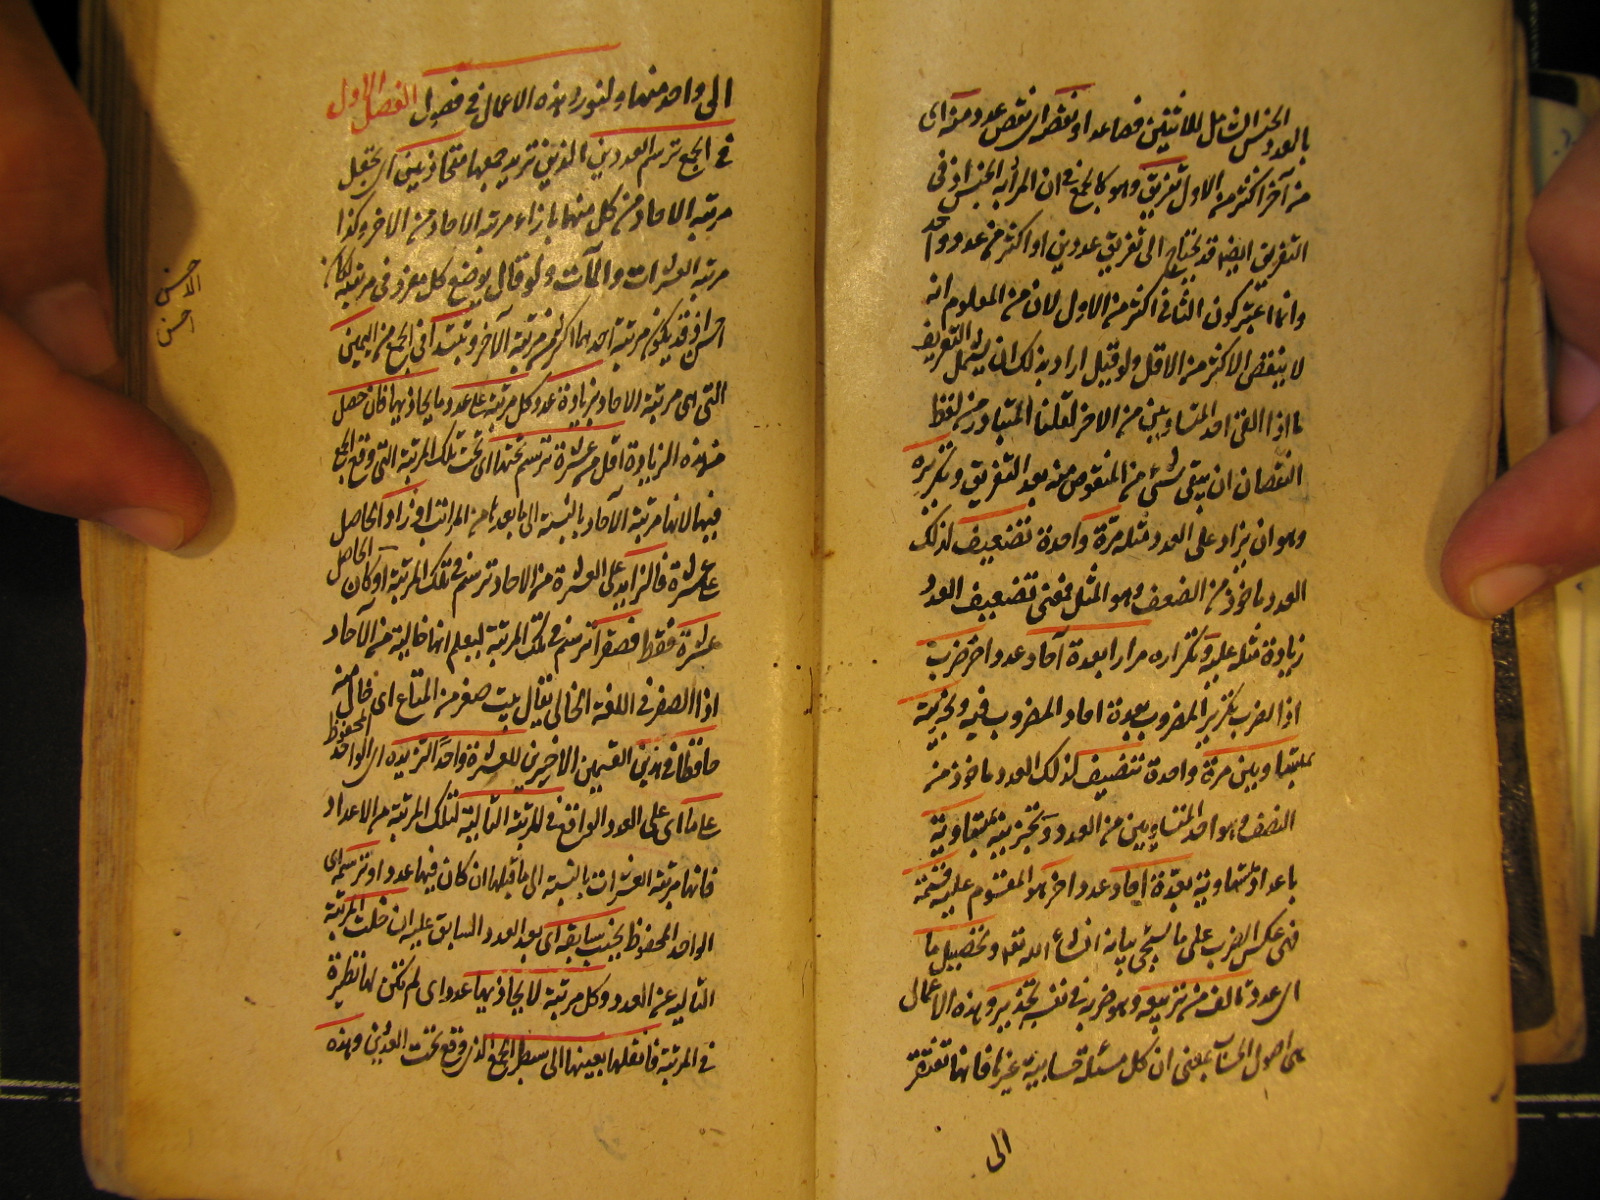 بالعدد الجنس الشامل للاثنين فصاعدا ونقصه اى نقص عدد منه اى
من آخر اكثر من الاول تفريق وهو كالجمع فى ان المراد به الجنس اذ فى
التفريق ايضا قد يحتاج الى تفريق عددين او اكثر من عدد واحد
وانما اعتبر كون الثانى اكثر من الاول لان من المعلوم انه
لا ينقص الاكثر من الاقل ولو قيل اراد بذلك ان يشمل التعريف
ما اذا القى احد المتساويين من الاخر لقلنا المتبادر من لفظ
النقصان ان يبقى شئ من المنقوص منه بعد التفريق وتكريره
وهو ان يزاد على العدد مثله مرة واحدة تضعيف لذلك
العدد ماخوذ من الضعف وهو المثل فمعنى تضعيف العدد
زيادة مثله عليه وتكراره مرارا بعدة آحاد عدد اخر ضرب
اذ الضرب تكرير المضروب بعدة احاد المضروب فيه وتجزيته
بمتساويين مرة واحدة تنصيف لذلك العدد ماخوذ من
النصف وهو احد المتساويين من العدد وتجزيته بمتساوية
باعداد متساوية بعدة احاد عدد اخر هو المقسوم عليه قسمة
فهى عكس الضرب على ما سيجئ بيانه انشاء الله تعه وتحصيل ما
اى عدد تالف من تربيعه وهو ضربه فى نفسه تجذير وهذه الاعمال
هى اصول الحساب بمعنى ان كل مسئلة حسابية غيرها فانها تفتقر
الى
الى واحد منها ولنورد هذه الاعمال فى فصول الفصل الاول
فى الجمع ترسم العددين الذين تريد جمعهما متحاذيين اى تجعل
مرتبة الاحاد من كل منهما بازاء مرتبة الاحاد من الاخر وكذا
مرتبة العشرات والمآت ولو قال يوضع كل مفرد فى مرتبته لكان
احسن اذ قد يكون مرتبة احدهما اكثر من مرتبة الآخر وتبتدأ فى الجمع من اليمين
التى هى مرتبة الاحاد بزيادة عدد كل مرتبة على عدد ما يحاذيها فان حصل
من هذه الزيادة اقل من عشرة ترسم تحتها اى تحت تلك المرتبة التى وقع الجمع
فيها لانها مرتبة الآحاد بالنسبة الى ما بعدها من المراتب او زاد الحاصل
على عشرة فالزايد على العشرة من الاحاد ترسم فى تلك المرتبة او كان الحاصل
عشرة فقط فصفرا ترسم فى تلك المرتبة ليعلم انها خالية من الآحاد
اذ الصفر فى اللغة الخالى يقال بيت صفر من المتاع اى خال منه
حافظا فى هذين القسمين الاخيرين للعشرة واحدا لتزيده اى الواحد المحفوظ
على ما اى على العدد الواقع فى المرتبة التالية لتلك المرتبة من الاعداد
فانها مرتبة العشرات بالنسبة الى ما قبلها ان كان فيها عدد او ترسمه اى
الواحد المحفوظ بجنب سابقه اى بعد العدد السابق عليه ان خلت المرتبة
التاليه عن العدد وكل مرتبة لا يحاذيها عدد اى لم تكن لها نظيرة
فى المرتبة فانقلها بعينها الى سطر الجمع الذى وقع تحت العددين وهذه
الاحسن
احسن